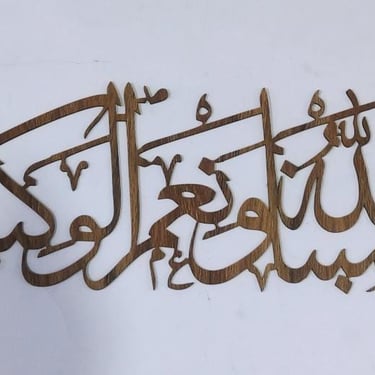 سبنا الله ونعم الوكي